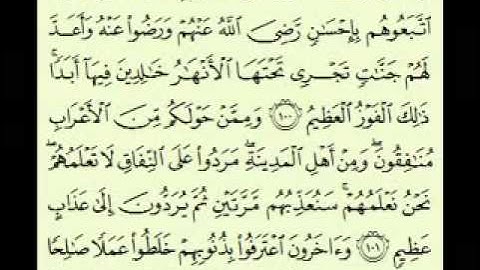 ٱتَّبَعُوهُم بِإِحْسَٰنٍ رَّضِىَ ٱللَّهُ عَنْهُمْ وَرَضُوا۟ عَنْهُ وَأَعَدَّ
لَهُمْ جَنَّٰتٍ تَجْرِى تَحْتَهَا ٱلْأَنْهَٰرُ خَٰلِدِينَ فِيهَآ أَبَدًا ۚ
ذَٰلِكَ ٱلْفَوْزُ ٱلْعَظِيمُ ١٠٠ وَمِمَّنْ حَوْلَكُم مِّنَ ٱلْأَعْرَابِ
مُنَٰفِقُونَ ۖ وَمِنْ أَهْلِ ٱلْمَدِينَةِ ۖ مَرَدُوا۟ عَلَى ٱلنِّفَاقِ لَا تَعْلَمُهُمْ ۖ
نَحْنُ نَعْلَمُهُمْ ۚ سَنُعَذِّبُهُم مَّرَّتَيْنِ ثُمَّ يُرَدُّونَ إِلَىٰ عَذَابٍ
عَظِيمٍ ١٠١ وَءَاخَرُونَ ٱعْتَرَفُوا۟ بِذُنُوبِهِمْ خَلَطُوا۟ عَمَلًا صَٰلِحًا